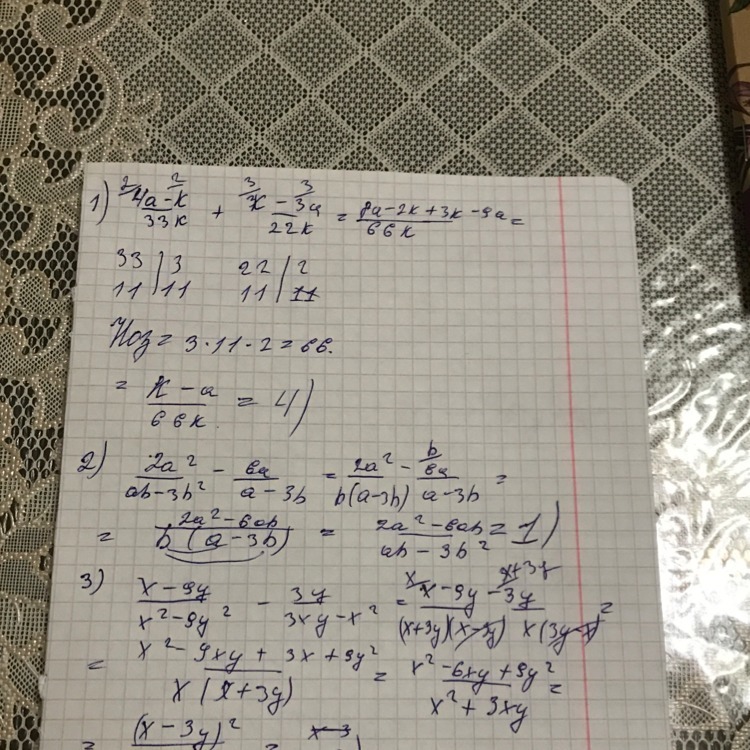 1) ²/4a - ²/k / 33k + ³/k - ³/3a / 22k = 8a - 2k + 3k - 9a / 66k =
33 | 3 22 | 2
11 | 11 11 | 11
Ноз = 3 · 11 · 2 = 66.
= k - a / 66k = 4)
2) 2a² / ab - 3b² - 6a / a - 3b = 2a² / b(a-3b) - b/6a / a - 3b =
= 2a² - 6ab / b(a - 3b) = 2a² - 6ab / ab - 3b² = 1)
3) x - 9y / x² - 9y² - 3y / 3xy - x² = x/x - 9y / (x+3y)(x-3y) - x+3y/3y / x(3y-x) =
= x² - 9xy + 3x + 9y² / x(x + 3y) = x² - 6xy + 9y² / x² + 3xy =
(x - 3y)² = x - 3